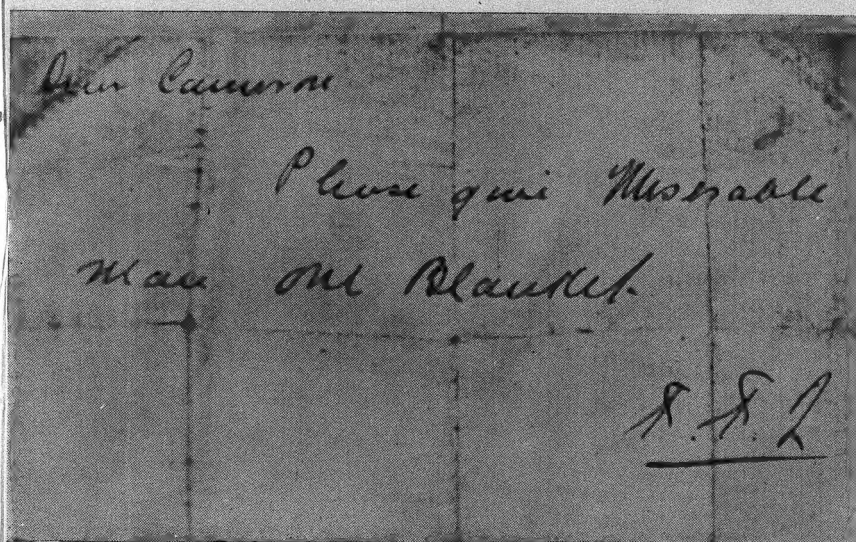 Dear Cameron
Please give Miserable
Man one Blanket.
T.T.Q